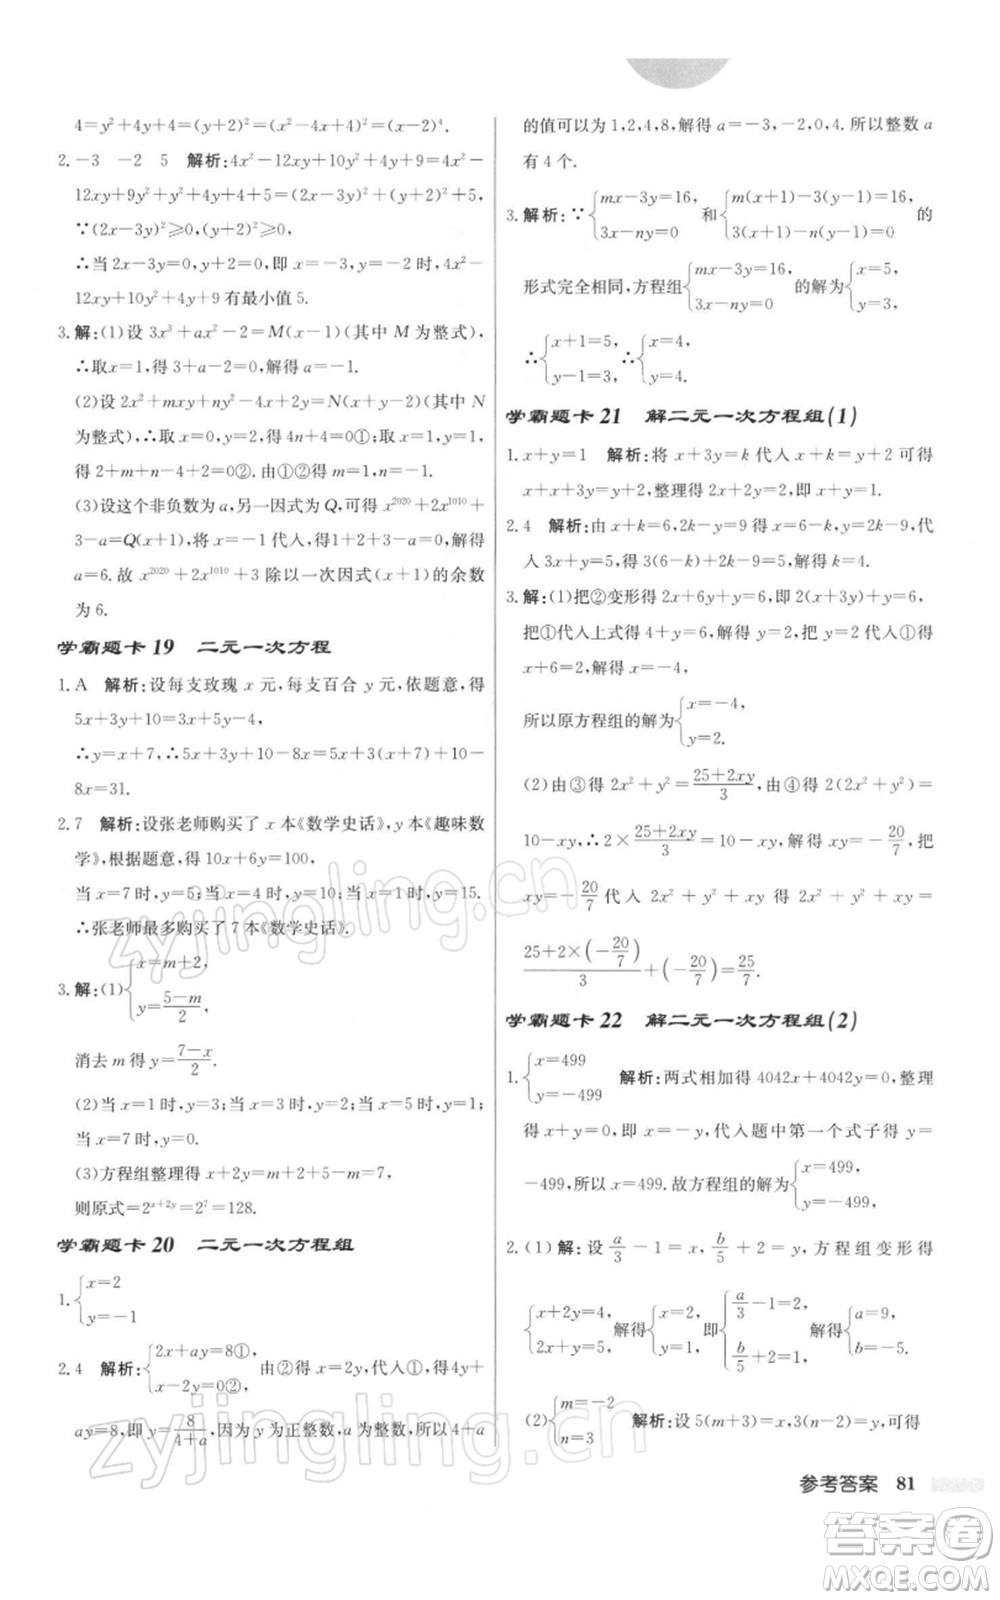 4=y²+4y+4=(y+2)²=(x²-4x+4)²=(x-2)⁴.
2. -3 -2 5 解析:4x²-12xy+10y²+4y+9=4x²-
12xy+9y²+y²+4y+4+5=(2x-3y)²+(y+2)²+5,
∵(2x-3y)²≥0,(y+2)²≥0,
∴当2x-3y=0,y+2=0,即x=-3,y=-2时,4x²-
12xy+10y²+4y+9有最小值5.
3.解:(1)设3x³+ax²-2=M(x-1)(其中M为整式),
∴取x=1,得3+a-2=0,解得a=-1.
(2)设2x²+mxy+ny²-4x+2y=N(x+y-2)(其中N
为整式),∴取x=0,y=2得4n+4=0①;取x=1,y=1,
得2+m+n-4+2=0②.由①②得m=1,n=-1.
(3)设这个非负数为a,另一因式为Q,可得x²⁰²⁰+2x¹⁰¹⁰+
3-a=Q(x+1),将x=-1代入,得1+2+3-a=0,解得
a=6.故x²⁰²⁰+2x¹⁰¹⁰+3除以一次因式(x+1)的余数
为6.
学霸题卡19 二元一次方程
1.A 解析:设每支玫瑰x元,每支百合y元,依题意,得
5x+3y+10=3x+5y-4,
∴y=x+7,∴5x+3y+10-8x=5x+3(x+7)+10-
8x=31.
2.7 解析:设张老师购买了x本《数学史话》,y本《趣味数
学》,根据题意,得10x+6y=100,
当x=7时,y=5;当x=4时,y=10;当x=1时,y=15.
∴张老师最多购买了7本《数学史话》.
3.解:(1){x=m+2, y=(5-m)/2,
消去m得y=(7-x)/2.
(2)当x=1时,y=3;当x=3时,y=2;当x=5时,y=1;
当x=7时,y=0.
(3)方程组整理得x+2y=m+2+5-m=7,
则原式=2^(x+2y)=2⁷=128.
学霸题卡20 二元一次方程组
1.{x=2 y=-1
2.4 解析:{2x+ay=8①, x-2y=0②, 由②得x=2y,代入①,得4y+
ay=8,即y=8/(4+a),因为y为正整数,a为整数,所以4+a
的值可以为1,2,4,8,解得a=-3,-2,0,4.所以整数a
有4个.
3.解析:∵{mx-3y=16, 3x-ny=0 和{m(x+1)-3(y-1)=16, 3(x+1)-n(y-1)=0 的
形式完全相同,方程组{mx-3y=16, 3x-ny=0 的解为{x=5, y=3,
∴{x+1=5, y-1=3, ∴{x=4, y=4.
学霸题卡21 解二元一次方程组(1)
1.x+y=1 解析:将x+3y=k代入x+k=-y+2可得
x+x+3y=-y+2,整理得2x+4y=2,即x+2y=1.
2.4 解析:由x+k=6,2k-y=9得x=6-k,y=2k-9,代
入3x+y=5,得3(6-k)+2k-9=5,解得k=4.
3.解:(1)把②变形得2x+6y+y=6,即2(x+3y)+y=6,
把①代入上式得4+y=6,解得y=2,把y=2代入①得
x+6=2,解得x=-4,
所以原方程组的解为{x=-4, y=2.
(2)由③得2x²+y²=(25+2xy)/3,由④得2(2x²+y²)=
10-xy,∴2×(25+2xy)/3=10-xy,解得xy=-20/7,把
xy=-20/7代入2x²+y²+xy得2x²+y²+xy=
(25+2×(-20/7))/3+(-20/7)=25/7.
学霸题卡22 解二元一次方程组(2)
1.{x=499 y=-499 解析:两式相加得4042x+4042y=0,整理
得x+y=0,即x=-y,代入题中第一个式子得y=
-499,所以x=499.故方程组的解为{x=499, y=-499.
2.(1)解:设a/3-1=x,b/5+2=y,方程组变形得
{x+2y=4, 解得{x=2, y=1, 即{a/3-1=2, b/5+2=1, 解得{a=9, b=-5.
(2){m=-2 n=3 解析:设5(m+3)=x,3(n-2)=y,可得
参考答案 81
zyjingling.cn
zyjingling.cn
答案圈
MXQE.COM